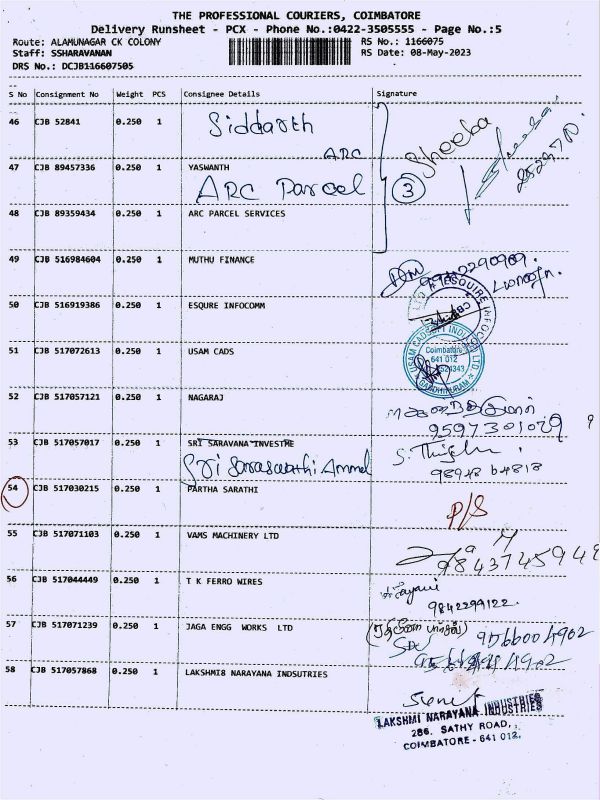 THE PROFESSIONAL COURIERS, COIMBATORE
Delivery Runsheet - PCX - Phone No.:0422-3505555 - Page No.:5
Route: ALAMUNAGAR CK COLONY RS No.: 1166075
Staff: SSHARAVANAN RS Date: 08-May-2023
DRS No.: DCJB116607505
S No Consignment No Weight PCS Consignee Details Signature
46 CJB 52841 0.250 1 Siddarth
ARC
Sheeba
47 CJB 89457336 0.250 1 YASWANTH
ARC Parcel
3
48 CJB 89359434 0.250 1 ARC PARCEL SERVICES
49 CJB 516984604 0.250 1 MUTHU FINANCE
50 CJB 516919386 0.250 1 ESQURE INFOCOMM
51 CJB 517072613 0.250 1 USAM CADS
Coimbatore
641 012
52 CJB 517057121 0.250 1 NAGARAJ
9597301029
53 CJB 517057017 0.250 1 SRI SARAVANA INVESTME
Sri Saraswathi Ammal
98948 64818
54 CJB 517030215 0.250 1 PARTHA SARATHI
P/S
55 CJB 517071103 0.250 1 VAMS MACHINERY LTD
56 CJB 517044449 0.250 1 T K FERRO WIRES
9842299122.
57 CJB 517071239 0.250 1 JAGA ENGG WORKS LTD
9566004902
58 CJB 517057868 0.250 1 LAKSHMI8 NARAYANA INDSUTRIES
LAKSHMI NARAYANA INDUSTRIES
286, SATHY ROAD,
COIMBATORE - 641 012.